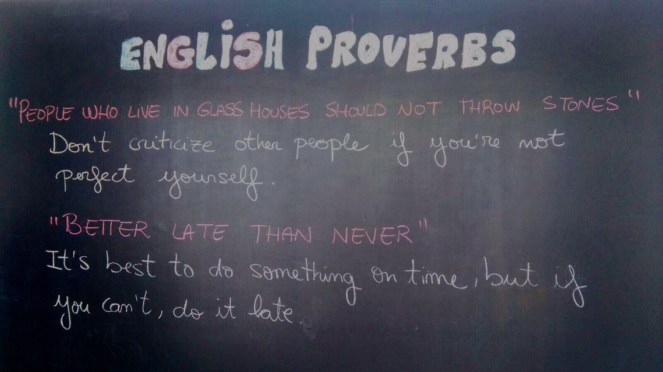 ENGLISH PROVERBS
"PEOPLE WHO LIVE IN GLASS HOUSES SHOULD NOT THROW STONES"
Don't criticize other people if you're not
perfect yourself.
"BETTER LATE THAN NEVER"
It's best to do something on time, but if
you can't, do it late.